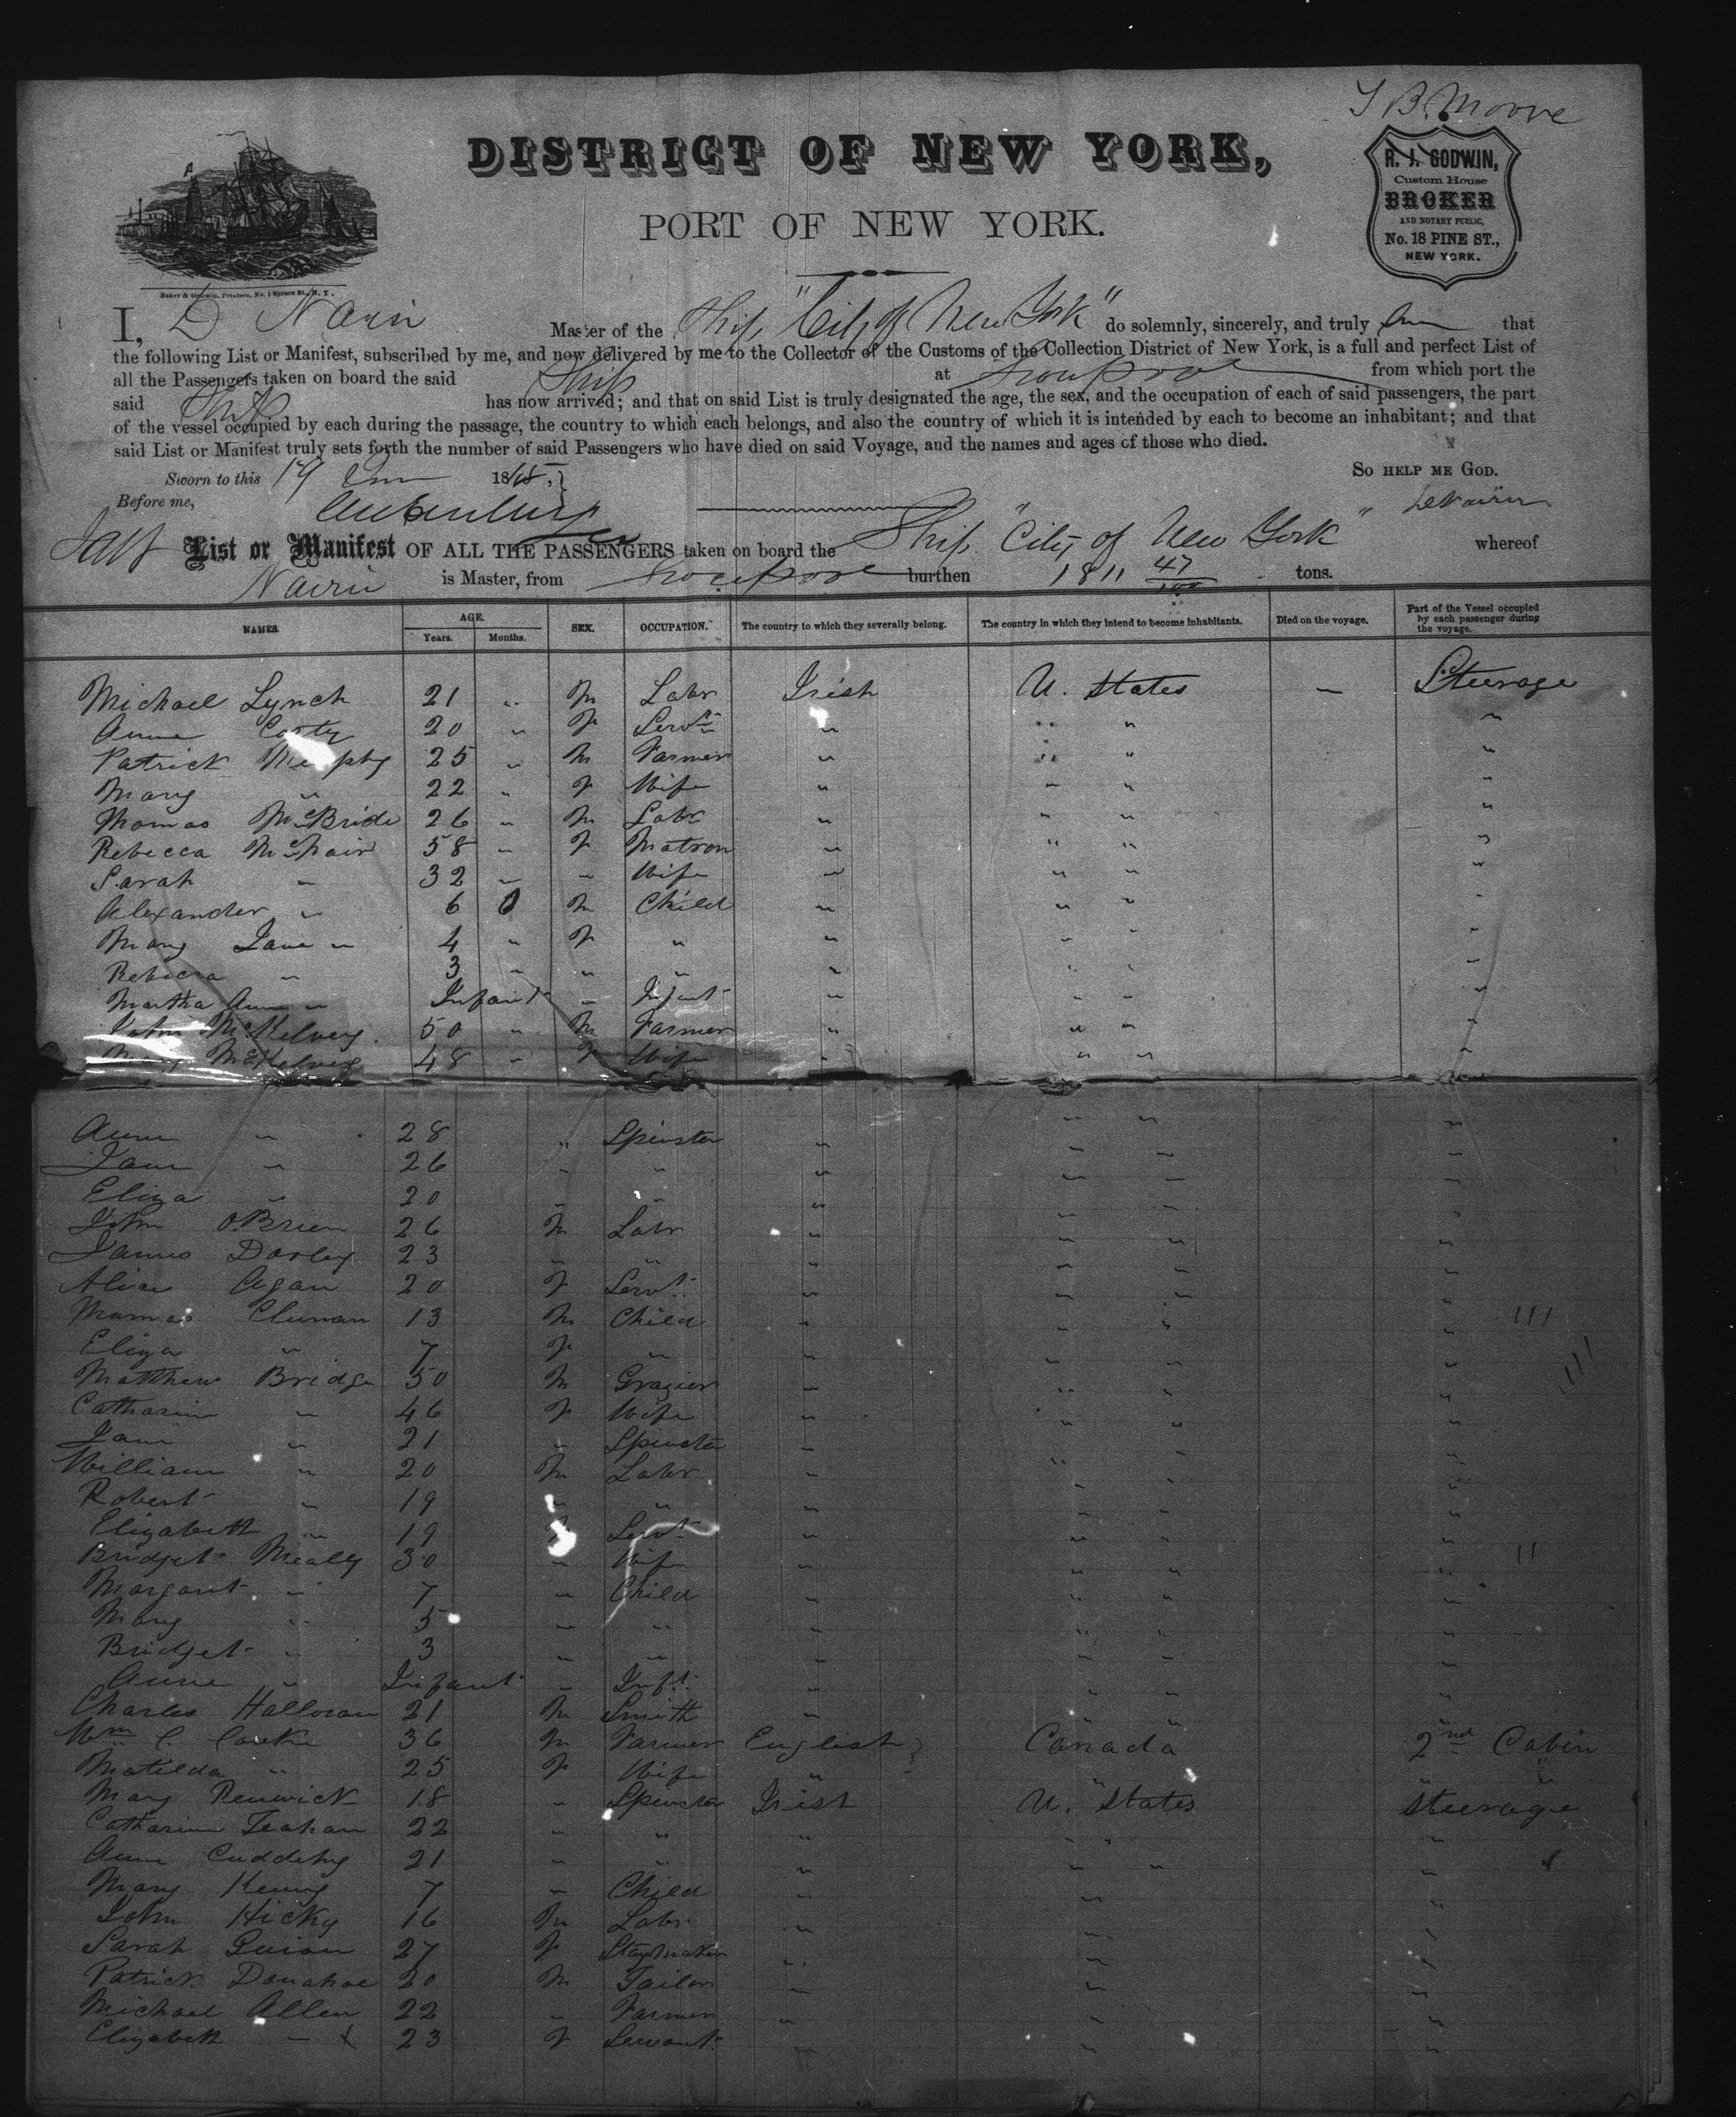 T B. Moore
DISTRICT OF NEW YORK,
PORT OF NEW YORK.
R. J. GODWIN,
Custom House
BROKER
AND NOTARY PUBLIC,
No. 18 PINE ST.,
NEW YORK.
Baker & Godwin, Printers, No. 1 Spruce St., N. Y.
I, D Nairn Master of the Ship "City of New York" do solemnly, sincerely, and truly that
the following List or Manifest, subscribed by me, and now delivered by me to the Collector of the Customs of the Collection District of New York, is a full and perfect List of
all the Passengers taken on board the said Ship at Liverpool from which port the
said Ship has now arrived; and that on said List is truly designated the age, the sex, and the occupation of each of said passengers, the part
of the vessel occupied by each during the passage, the country to which each belongs, and also the country of which it is intended by each to become an inhabitant; and that
said List or Manifest truly sets forth the number of said Passengers who have died on said Voyage, and the names and ages of those who died.
Sworn to this 19 1865, So HELP ME GOD.
Before me, Nairn
List or Manifest OF ALL THE PASSENGERS taken on board the Ship "City of New York" whereof
Nairn is Master, from Liverpool burthen 1811 47/100 tons.
NAMES. AGE. Years. Months. SEX. OCCUPATION. The country to which they severally belong. The country in which they intend to become inhabitants. Died on the voyage. Part of the Vessel occupied by each passenger during the voyage.
Michael Lynch 21 " M Labr Irish U. States — Steerage
Anne 20 " F Servt " " " "
Patrick Murphy 25 " M Farmer " " " "
Mary " 22 " F Wife " " " "
Thomas McBride 26 " M Labr " " " "
Rebecca McNair 58 " F Matron " " " "
Sarah " 32 " " Wife " " " "
Alexander " 6 0 M Child " " " "
Mary Jane " 4 " F " " " " "
Rebecca " 3 " " " " " " "
Martha Ann " Infant " Infant " " " "
John McKelvey 50 " M Farmer " " " "
Mary McKelvey 48 " F Wife " " " "
Anne " 28 " Spinster " " " "
Jane " 26 " " " " " "
Eliza " 20 " " " " " "
John O'Brien 26 M Labr " " " "
James Darley 23 " " " " " "
Alice Agan 20 F Servt " " " "
Thomas Clunan 13 M Child " " " "
Eliza " 7 F " " " " "
Matthew Bridge 50 M Grazier " " " "
Catharine " 46 F Wife " " " "
Jane " 21 " Spinster " " " "
William " 20 M Labr " " " "
Robert " 19 " " " " " "
Elizabeth " 19 F Servt " " " "
Bridget Meally 30 " Wife " " " "
Margaret " 7 " Child " " " "
Mary " 5 " " " " " "
Bridget " 3 " " " " " "
Anne " Infant " Inft " " " "
Charles Halloran 21 M Smith " " " "
Wm C. Cooke 36 M Farmer English Canada 2nd Cabin
Matilda " 25 F Wife " " "
Mary Renwick 18 " Spinster Irish U. States Steerage
Catharine Teahan 22 " " " " " "
Anne Cuddihy 21 " " " " " "
Mary Kenny 7 " Child " " "
John Hicky 16 M Labr " " "
Sarah Guion 27 F Staymaker " " "
Patrick Donahoe 20 M Tailor " " "
Michael Allen 22 " Farmer " " "
Elizabeth " 23 F Servant " " "